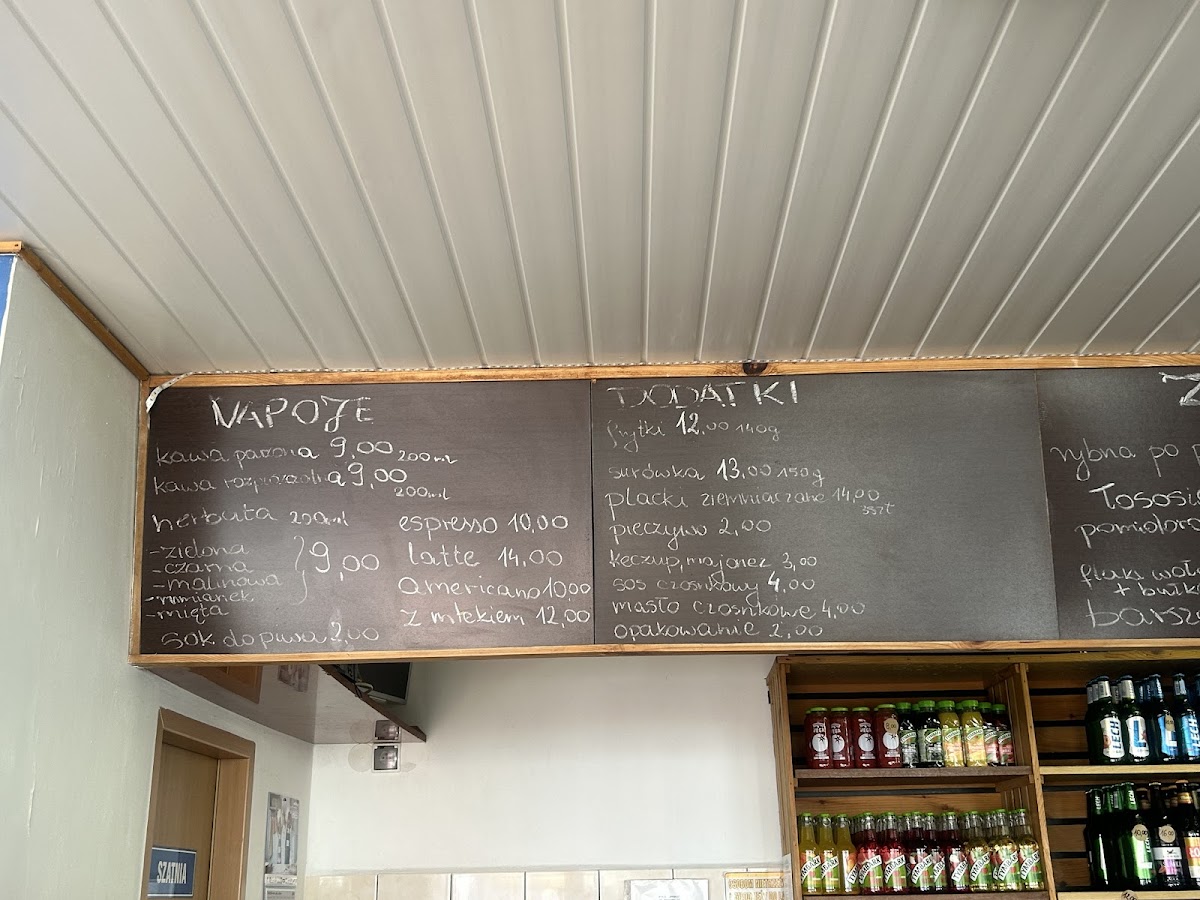 NAPOJE
kawa parzona 9,00 200ml
kawa rozpuszczalna 9,00
200ml
herbata 200ml
-zielona
-czarna
-malinowa
-rumianek
-mięta
9,00
sok do piwa 2,00
espresso 10,00
latte 14,00
americano 10,00
z mlekiem 12,00
DODATKI
frytki 12,00 140g
surówka 13,00 150g
placki ziemniaczane 14,00
3szt
pieczywo 2,00
keczup, majonez 3,00
sos czosnkowy 4,00
masło czosnkowe 4,00
opakowanie 2,00
Z
rybna po
pomidoro
flaki woło
+ bułk
barsz
SZATNIA
LECH